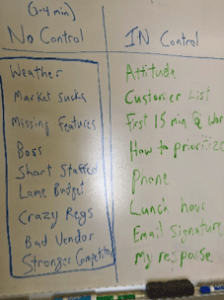 (3-4 min)
No Control
Weather
Market sucks
Missing Features
Boss
Short Staffed
Lame Budget
Crazy Regs
Bad Vendor
Stronger Competitor
IN Control
Attitude
Customer List
First 15 min @ Work
How to prioritize
Phone
Lunch hour
Email Signature
My response